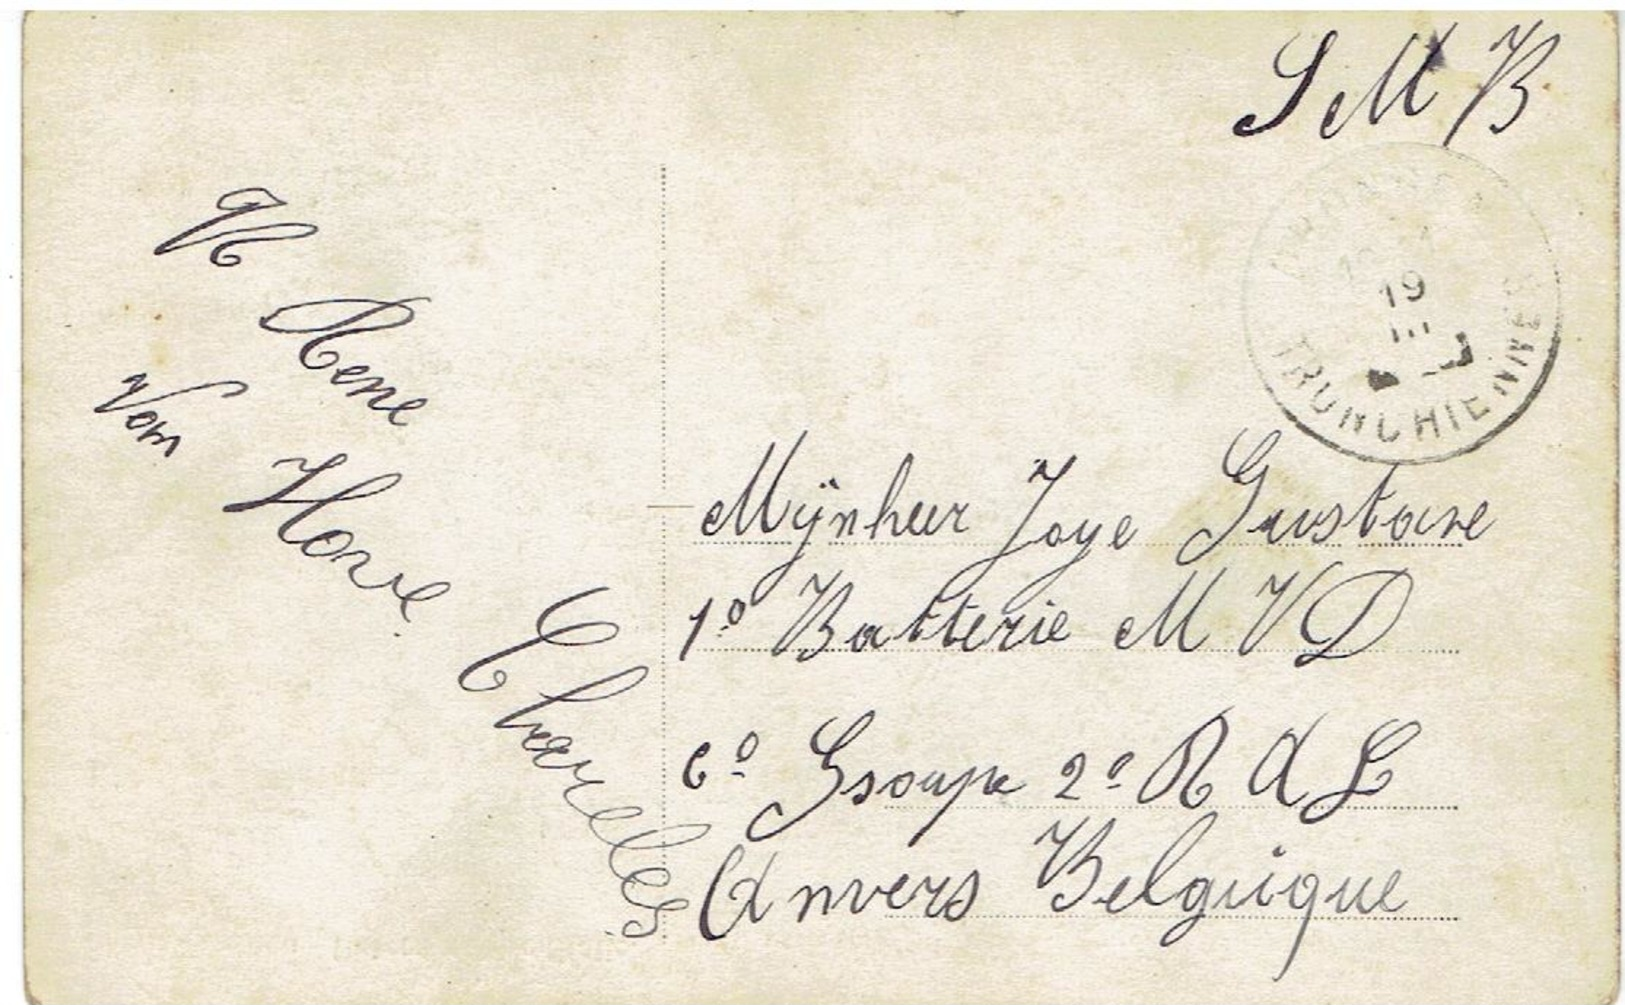 S M B
19
III
TRONCHIENNES
Vr Rene
Van Hove
Charelles
Mÿnheer Joye Gustave
1º Batterie M V D
6º Gsoupe 2º R A L
Anvers Belgüque